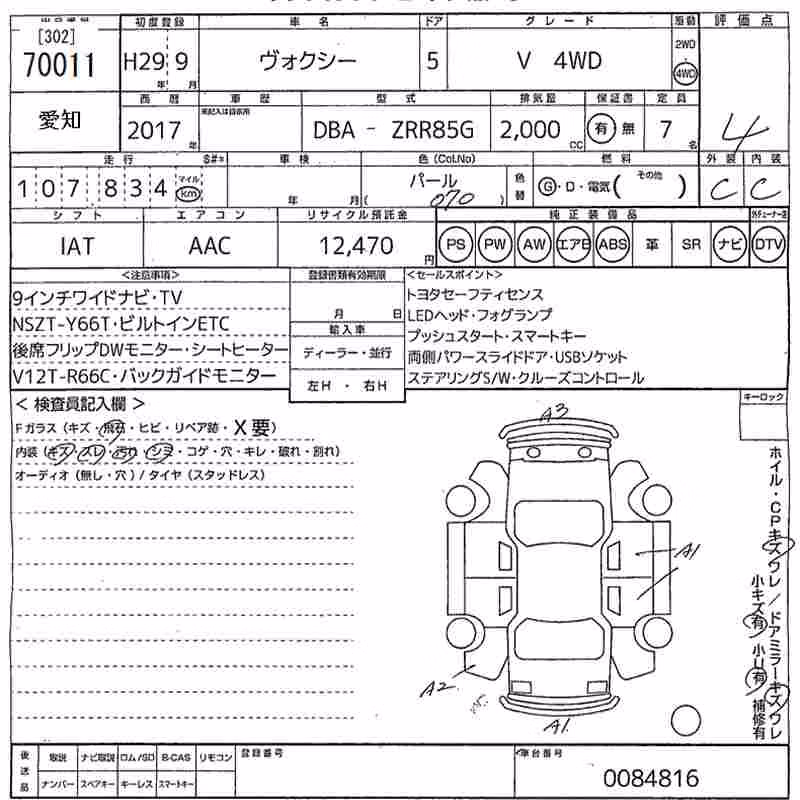 初度登録 車名 ドア グレード 駆動 評価点
[302]
70011 H29 9 ヴォクシー 5 V 4WD 2WD 4WD
年 月
愛知 西暦 車歴 型式 排気量 保証書 定員
2017 DBA - ZRR85G 2,000 有 無 7 4
年 CC 名
走行 S#* 車検 色(Col.No) 燃料 外装 内装
107834 マイル km 年 月 パール 色替 G・D・電気( その他 ) C C
( 070 )
シフト エアコン リサイクル預託金 純正装備品
IAT AAC 12,470 円 PS PW AW エアB ABS 革 SR ナビ DTV
<注意事項> 登録書類有効期限 <セールスポイント>
9インチワイドナビ・TV トヨタセーフティセンス
月 日
NSZT-Y66T・ビルトインETC LEDヘッド・フォグランプ
輸入車 プッシュスタート・スマートキー
後席フリップDWモニター・シートヒーター ディーラー・並行 両側パワースライドドア・USBソケット
V12T-R66C・バックガイドモニター 左H ・ 右H ステアリングS/W・クルーズコントロール
< 検査員記入欄 > キーロック
Fガラス (キズ・飛石・ヒビ・リペア跡・X要)
内装 (キズ・スレ・汚れ・シミ・コゲ・穴・キレ・破れ・割れ)
オーディオ (無し・穴) / タイヤ (スタッドレス)
A3
A1
A2
A1
ホイル・CPキズワレ / ドアミラーキズワレ
小キズ有 小U有 補修有
後送品 取説 ナビ取説 ロム/SD B-CAS リモコン 登録番号 車台番号
ナンバー スペアキー キーレス スマートキー 0084816